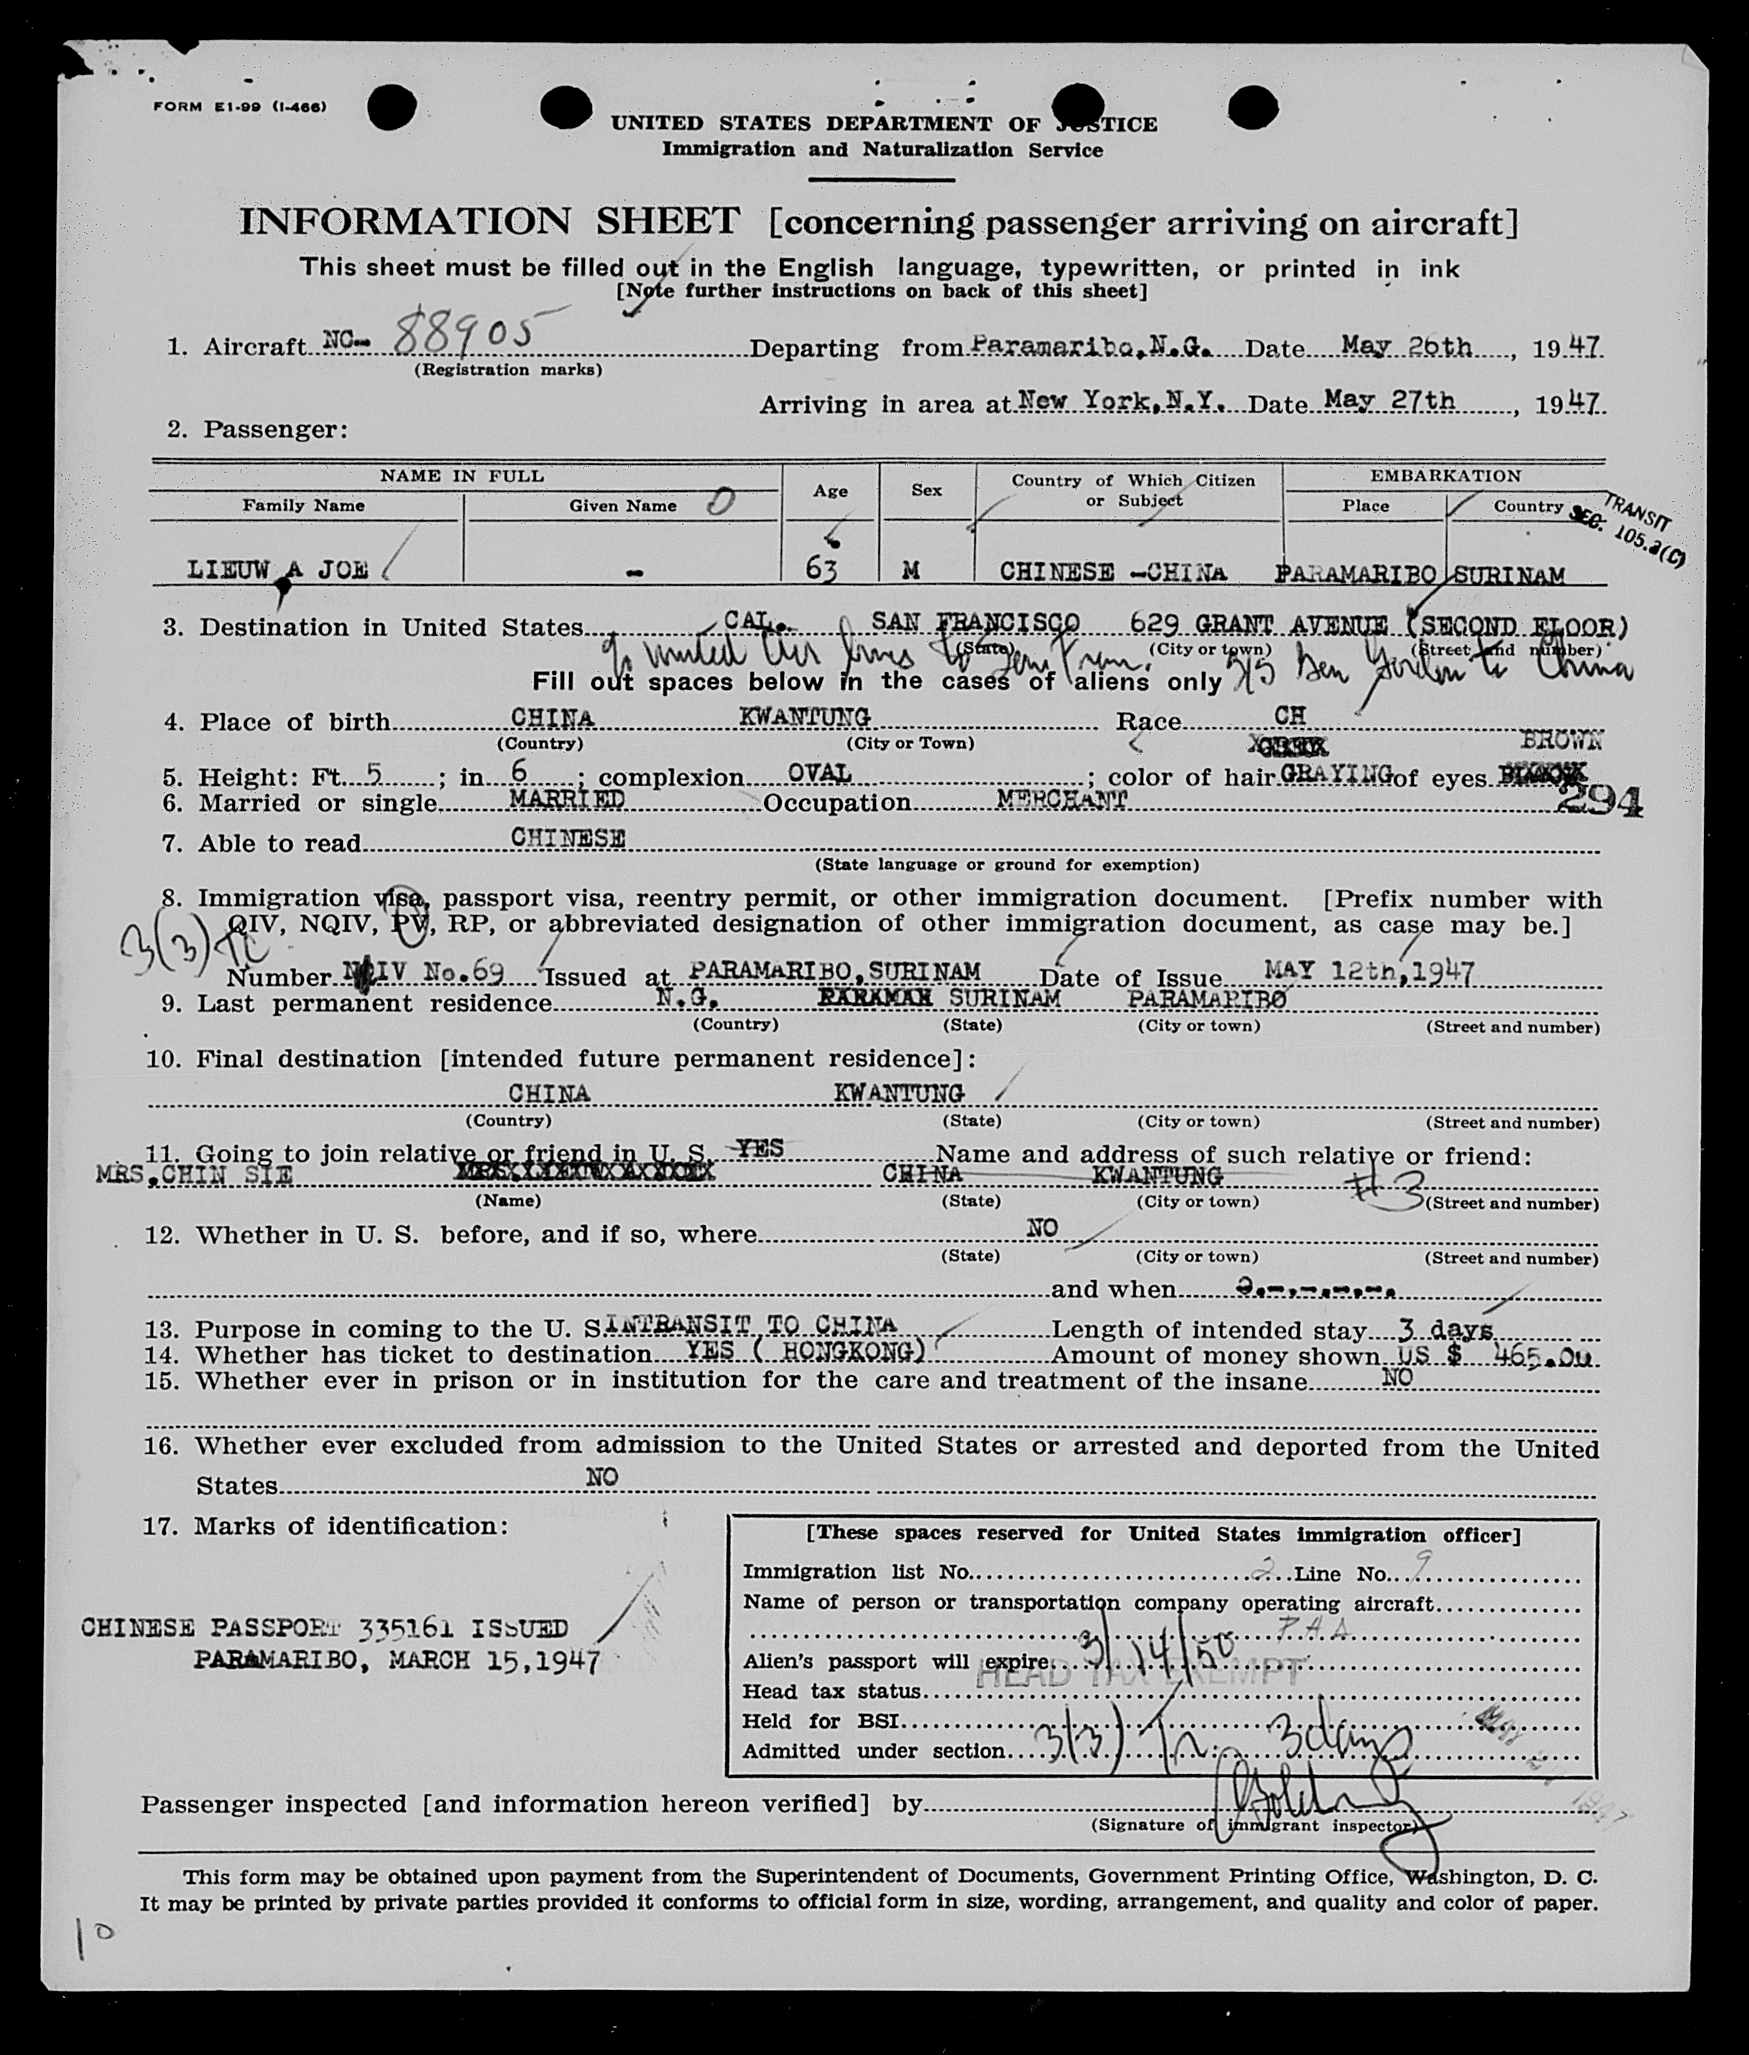 FORM E1-99 (I-466)
UNITED STATES DEPARTMENT OF JUSTICE
Immigration and Naturalization Service
INFORMATION SHEET [concerning passenger arriving on aircraft]
This sheet must be filled out in the English language, typewritten, or printed in ink
[Note further instructions on back of this sheet]
1. Aircraft NC- 88905 Departing from Paramaribo, N.G. Date May 26th, 1947
(Registration marks)
Arriving in area at New York, N.Y. Date May 27th, 1947.
2. Passenger:
NAME IN FULL Age Sex Country of Which Citizen or Subject EMBARKATION
Family Name Given Name Place Country
TRANSIT
SEC. 105.3(C)
LIEUW A JOE - 63 M CHINESE -CHINA PARAMARIBO SURINAM
3. Destination in United States CAL. SAN FRANCISCO 629 GRANT AVENUE (SECOND FLOOR)
(State) (City or town) (Street and number)
United Air Lines to San Fran. S/S Gen Gordon to China
Fill out spaces below in the cases of aliens only
4. Place of birth CHINA KWANTUNG Race CH
(Country) (City or Town)
BROWN
5. Height: Ft. 5; in. 6; complexion OVAL; color of hair GRAYING of eyes
6. Married or single MARRIED Occupation MERCHANT
294
7. Able to read CHINESE
(State language or ground for exemption)
8. Immigration visa, passport visa, reentry permit, or other immigration document. [Prefix number with
QIV, NQIV, PV, RP, or abbreviated designation of other immigration document, as case may be.]
3(3)
Number IV No.69 Issued at PARAMARIBO, SURINAM Date of Issue MAY 12th, 1947
9. Last permanent residence N.G. SURINAM PARAMARIBO
(Country) (State) (City or town) (Street and number)
10. Final destination [intended future permanent residence]:
CHINA KWANTUNG
(Country) (State) (City or town) (Street and number)
11. Going to join relative or friend in U. S. YES Name and address of such relative or friend:
MRS. CHIN SIE CHINA KWANTUNG #3
(Name) (State) (City or town) (Street and number)
12. Whether in U. S. before, and if so, where NO
(State) (City or town) (Street and number)
and when
13. Purpose in coming to the U. S. INTRANSIT TO CHINA Length of intended stay 3 days
14. Whether has ticket to destination YES ( HONGKONG) Amount of money shown US $ 465.00
15. Whether ever in prison or in institution for the care and treatment of the insane NO
16. Whether ever excluded from admission to the United States or arrested and deported from the United
States NO
17. Marks of identification:
CHINESE PASSPORT 335161 ISSUED
PARAMARIBO, MARCH 15, 1947
[These spaces reserved for United States immigration officer]
Immigration list No. 2 Line No. 9
Name of person or transportation company operating aircraft
P.A.A.
Alien's passport will expire 3/14/50
HEAD TAX EXEMPT
Head tax status
Held for BSI
Admitted under section 3(3) Tr. 3 days
Passenger inspected [and information hereon verified] by
(Signature of immigrant inspector)
This form may be obtained upon payment from the Superintendent of Documents, Government Printing Office, Washington, D. C.
It may be printed by private parties provided it conforms to official form in size, wording, arrangement, and quality and color of paper.
10